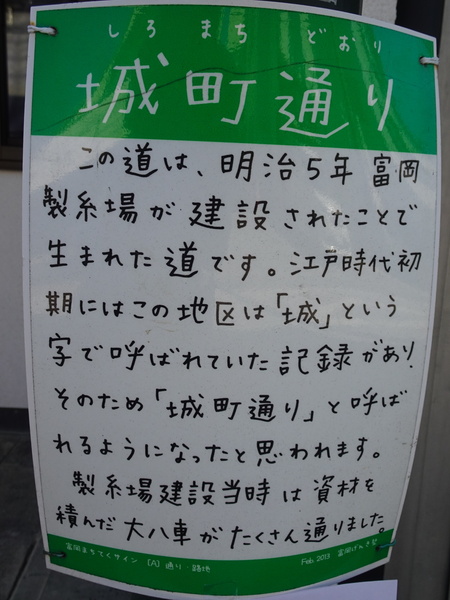 しろまちどおり
城町通り
この道は、明治5年 富岡
製糸場が建設されたことで
生まれた道です。江戸時代初
期にはこの地区は「城」という
字で呼ばれていた記録があり、
そのため「城町通り」と呼ば
れるようになったと思われます。
製糸場建設当時は資材を
積んだ大八車がたくさん通りました。
富岡まちてくサイン [A] 通り・路地
Feb 2013 富岡げんき塾